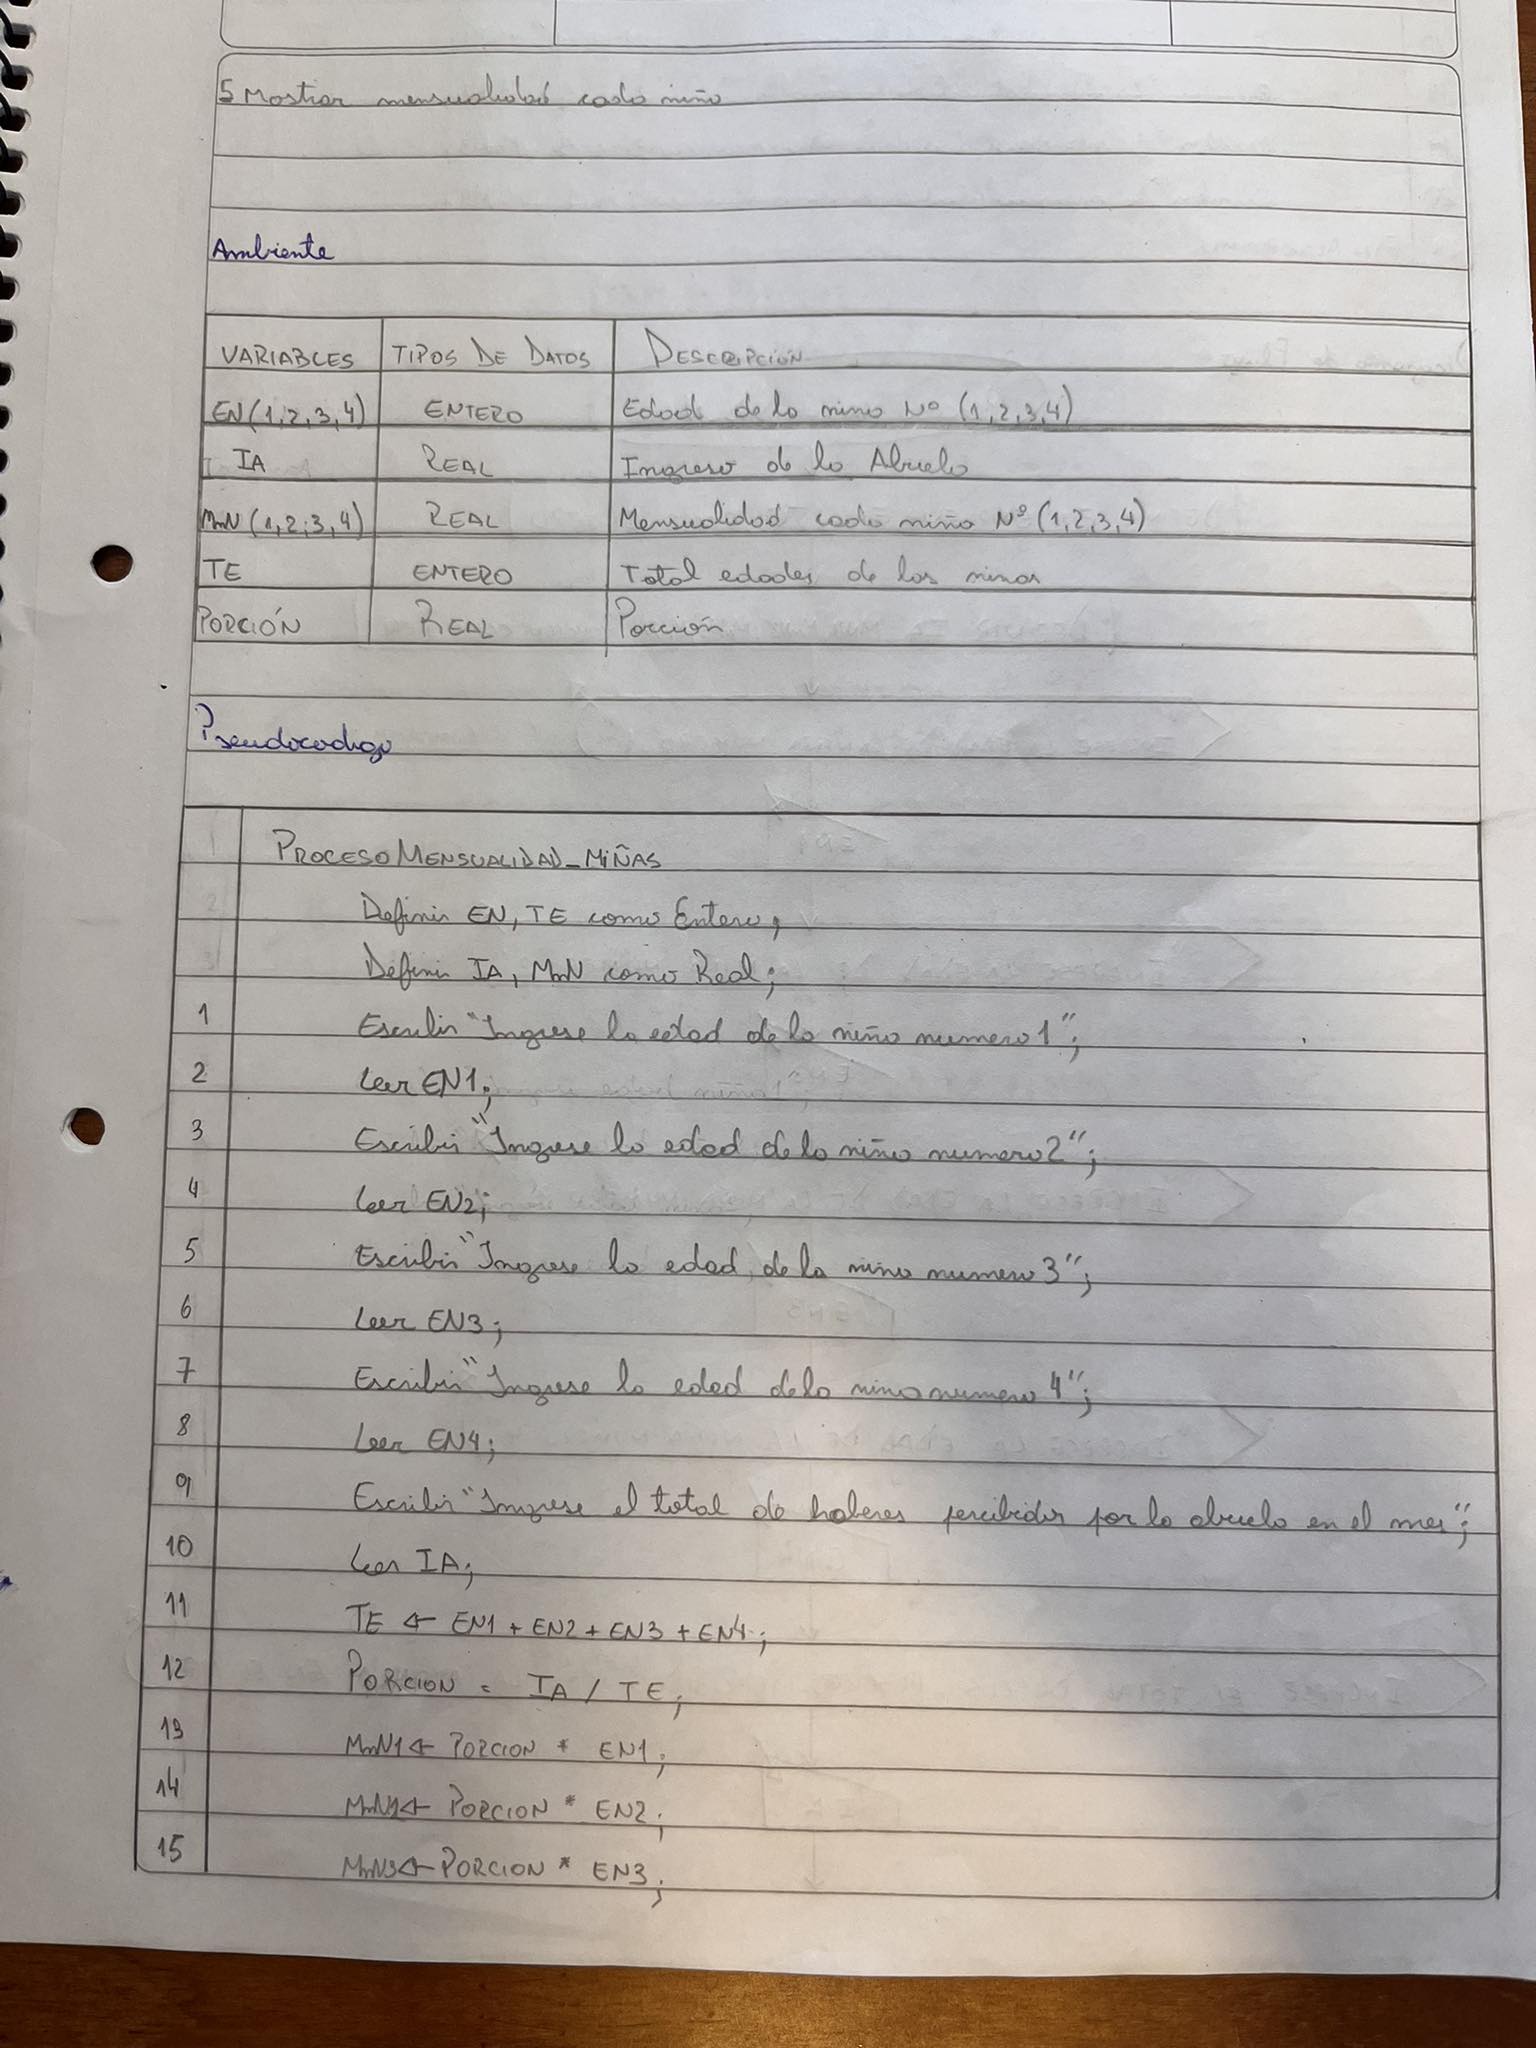 5 Mostrar mensualidad cada niña
Ambiente
VARIABLES TIPOS DE DATOS DESCRIPCIÓN
EN(1,2,3,4) ENTERO Edad de la nina Nº (1,2,3,4)
IA REAL Ingreso de la Abuela
MnN (1,2,3,4) REAL Mensualidad cada niña Nº (1,2,3,4)
TE ENTERO Total edades de las ninas
PORCIÓN REAL Porción
Pseudocodigo
1 PROCESO MENSUALIDAD_NIÑAS
2 Definir EN, TE como Entero;
3 Definir IA, MnN como Real;
1 Escribir "Ingrese la edad de la niña numero 1";
2 Leer EN1;
3 Escribir "Ingrese la edad de la niña numero 2";
4 Leer EN2;
5 Escribir "Ingrese la edad de la nina numero 3";
6 Leer EN3;
7 Escribir "Ingrese la edad de la nina numero 4";
8 Leer EN4;
9 Escribir "Ingrese el total de haberes percibidos por la abuela en el mes";
10 Leer IA;
11 TE ← EN1 + EN2 + EN3 + EN4;
12 PORCION = IA / TE;
13 MnN1 ← PORCION * EN1;
14 ← PORCION * EN2;
15 MnN3 ← PORCION * EN3;